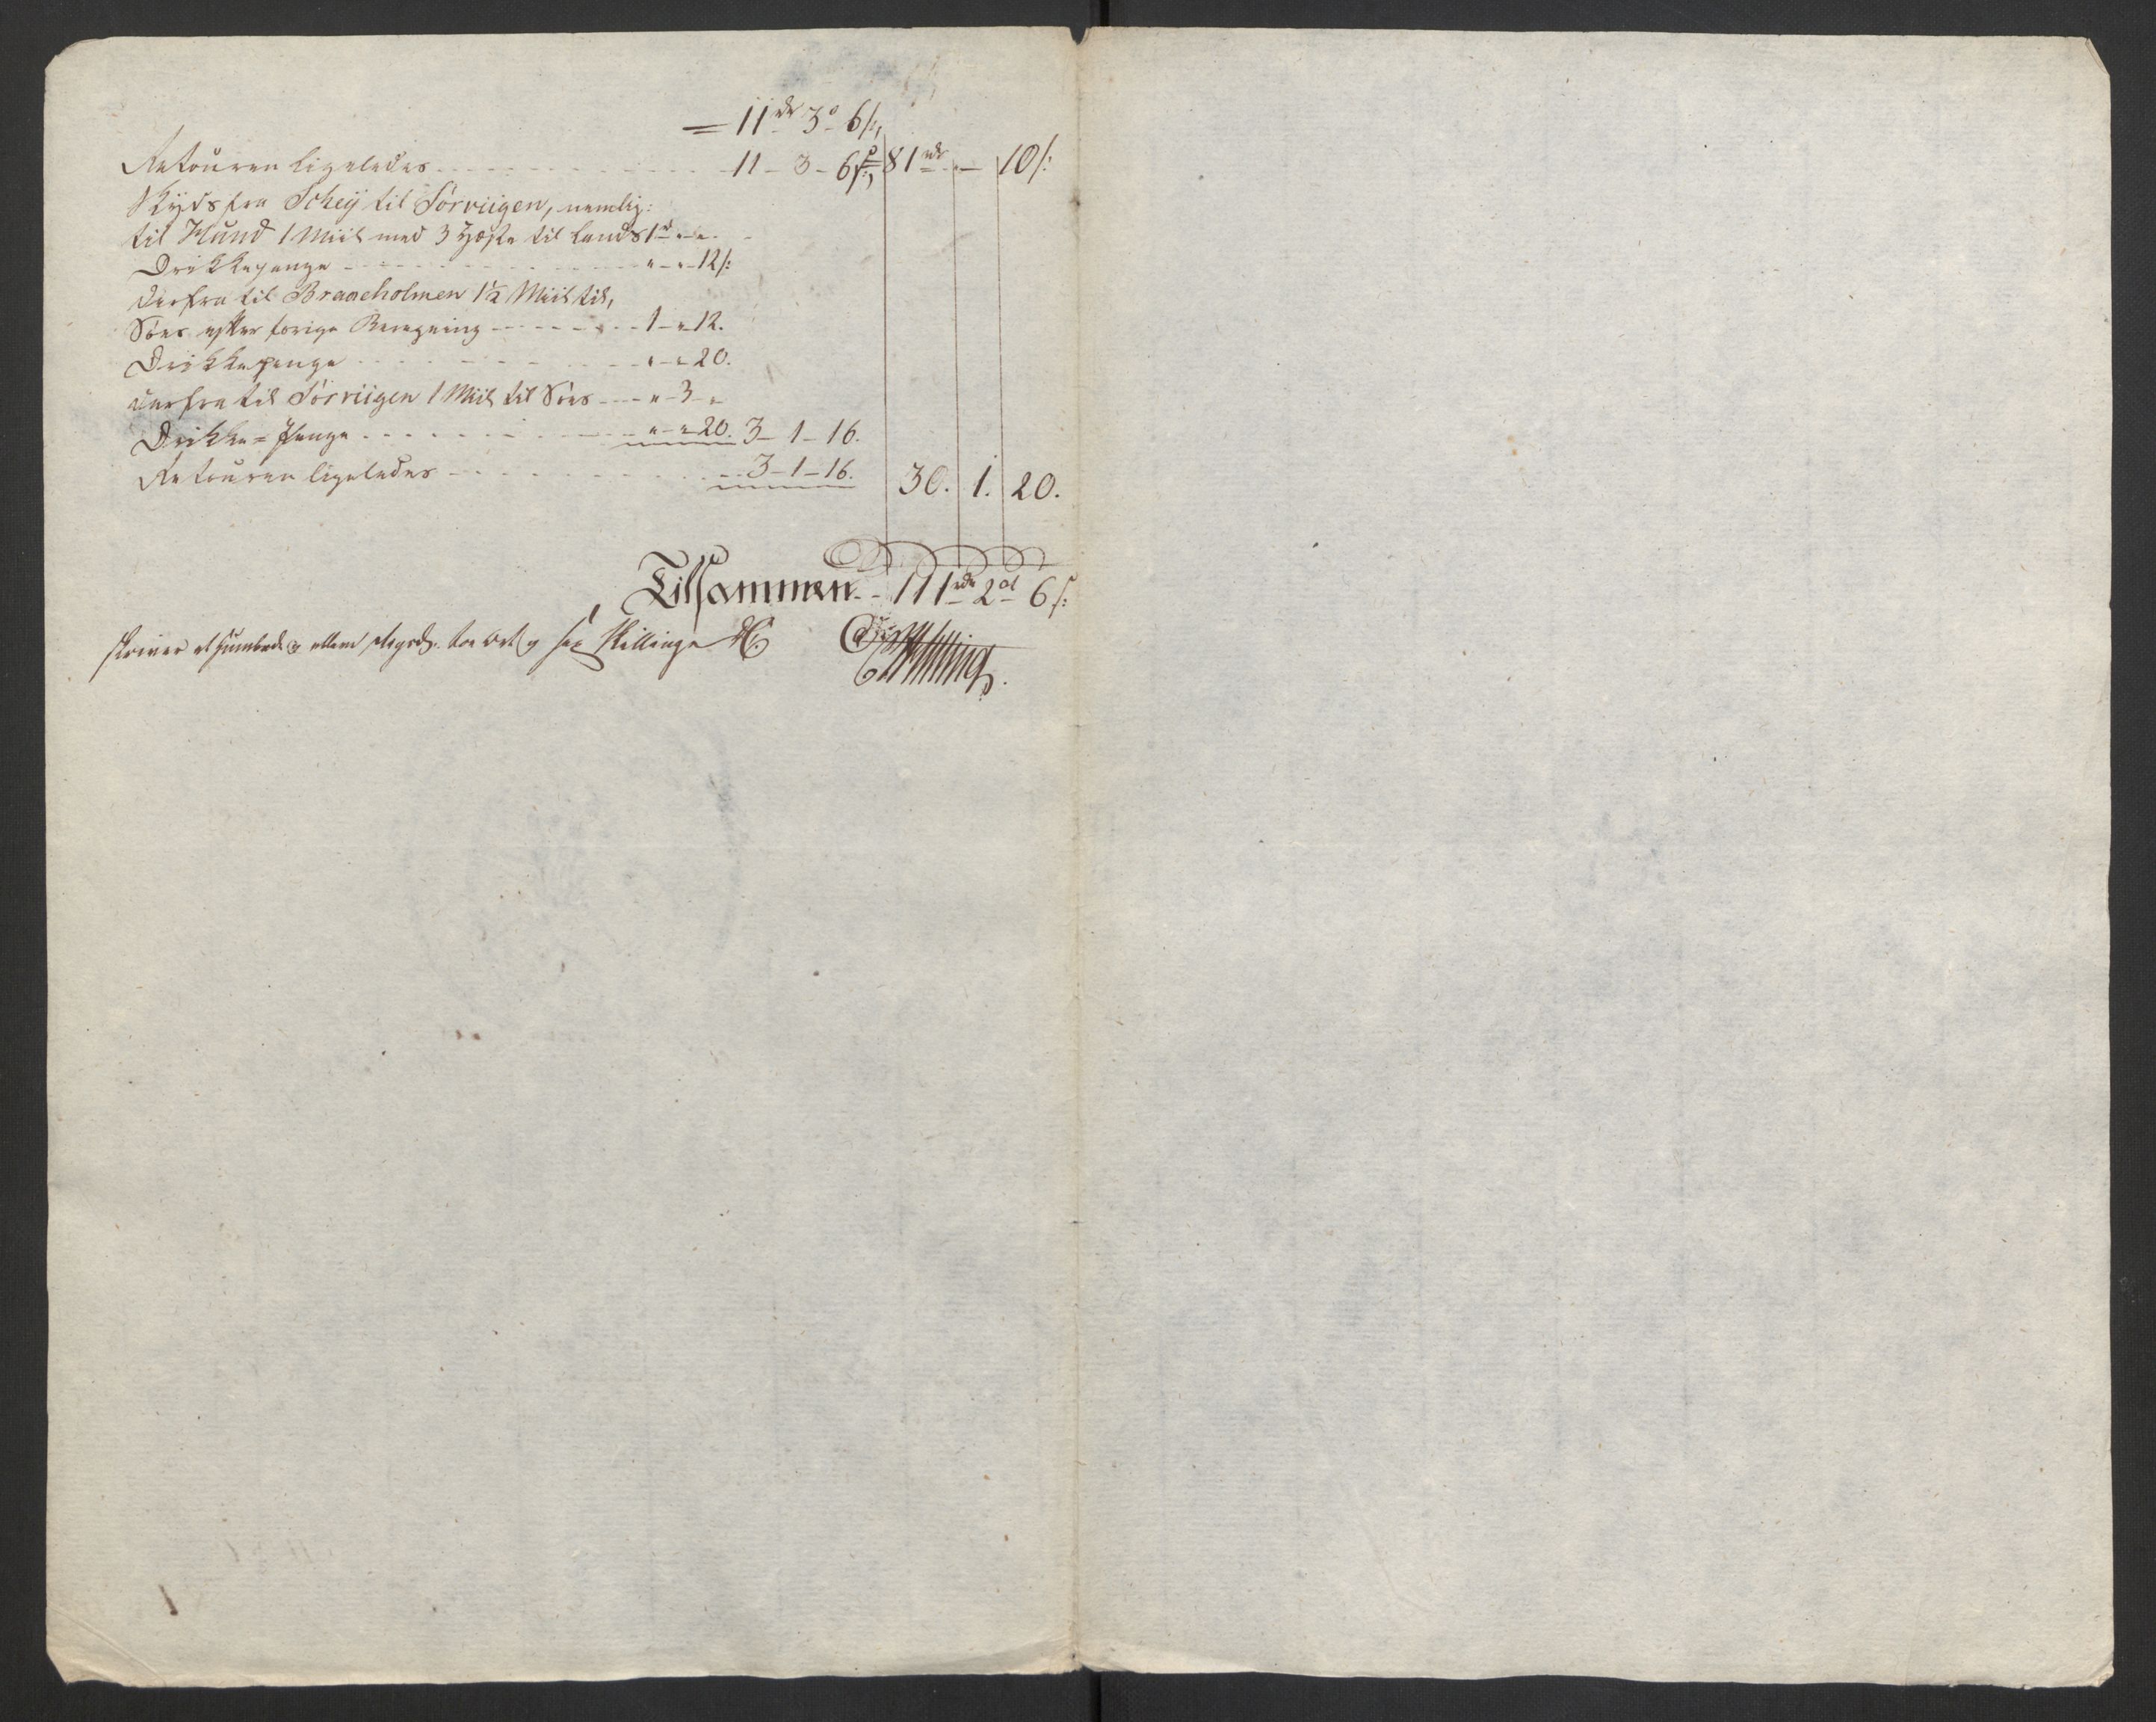 = 11 rdr 3 o 6 s,
Retouren ligeledes - - - 11 - 3 - 6 s, 81 rdr „ — 10 s:
Skyds fra Scheij til Sørviigen, nemlig:
til Hund 1 Miil med 3 Hæste til Lands 1 rd „ - „ -
Drikkepenge - - - „ - „ - 12 s:
derfra til Braaeholmen 1½ Miil til,
Søes efter forige Beregning - - - 1 - „ - 12.
Drikkepenge - - - „ - „ - 20.
derfra til Sørviigen 1 Miil til Søes - - - „ - 3 - „
Drikke = Penge - - - „ - „ - 20. 3 - 1 - 16.
Retouren ligeledes - - - 3 - 1 - 16. 30. 1. 20.
Tilsammen - - 111 rdr 2 ol 6 s:
skriver et hundrede og elleve Rigsdr. toe Ort og sex Skillinge